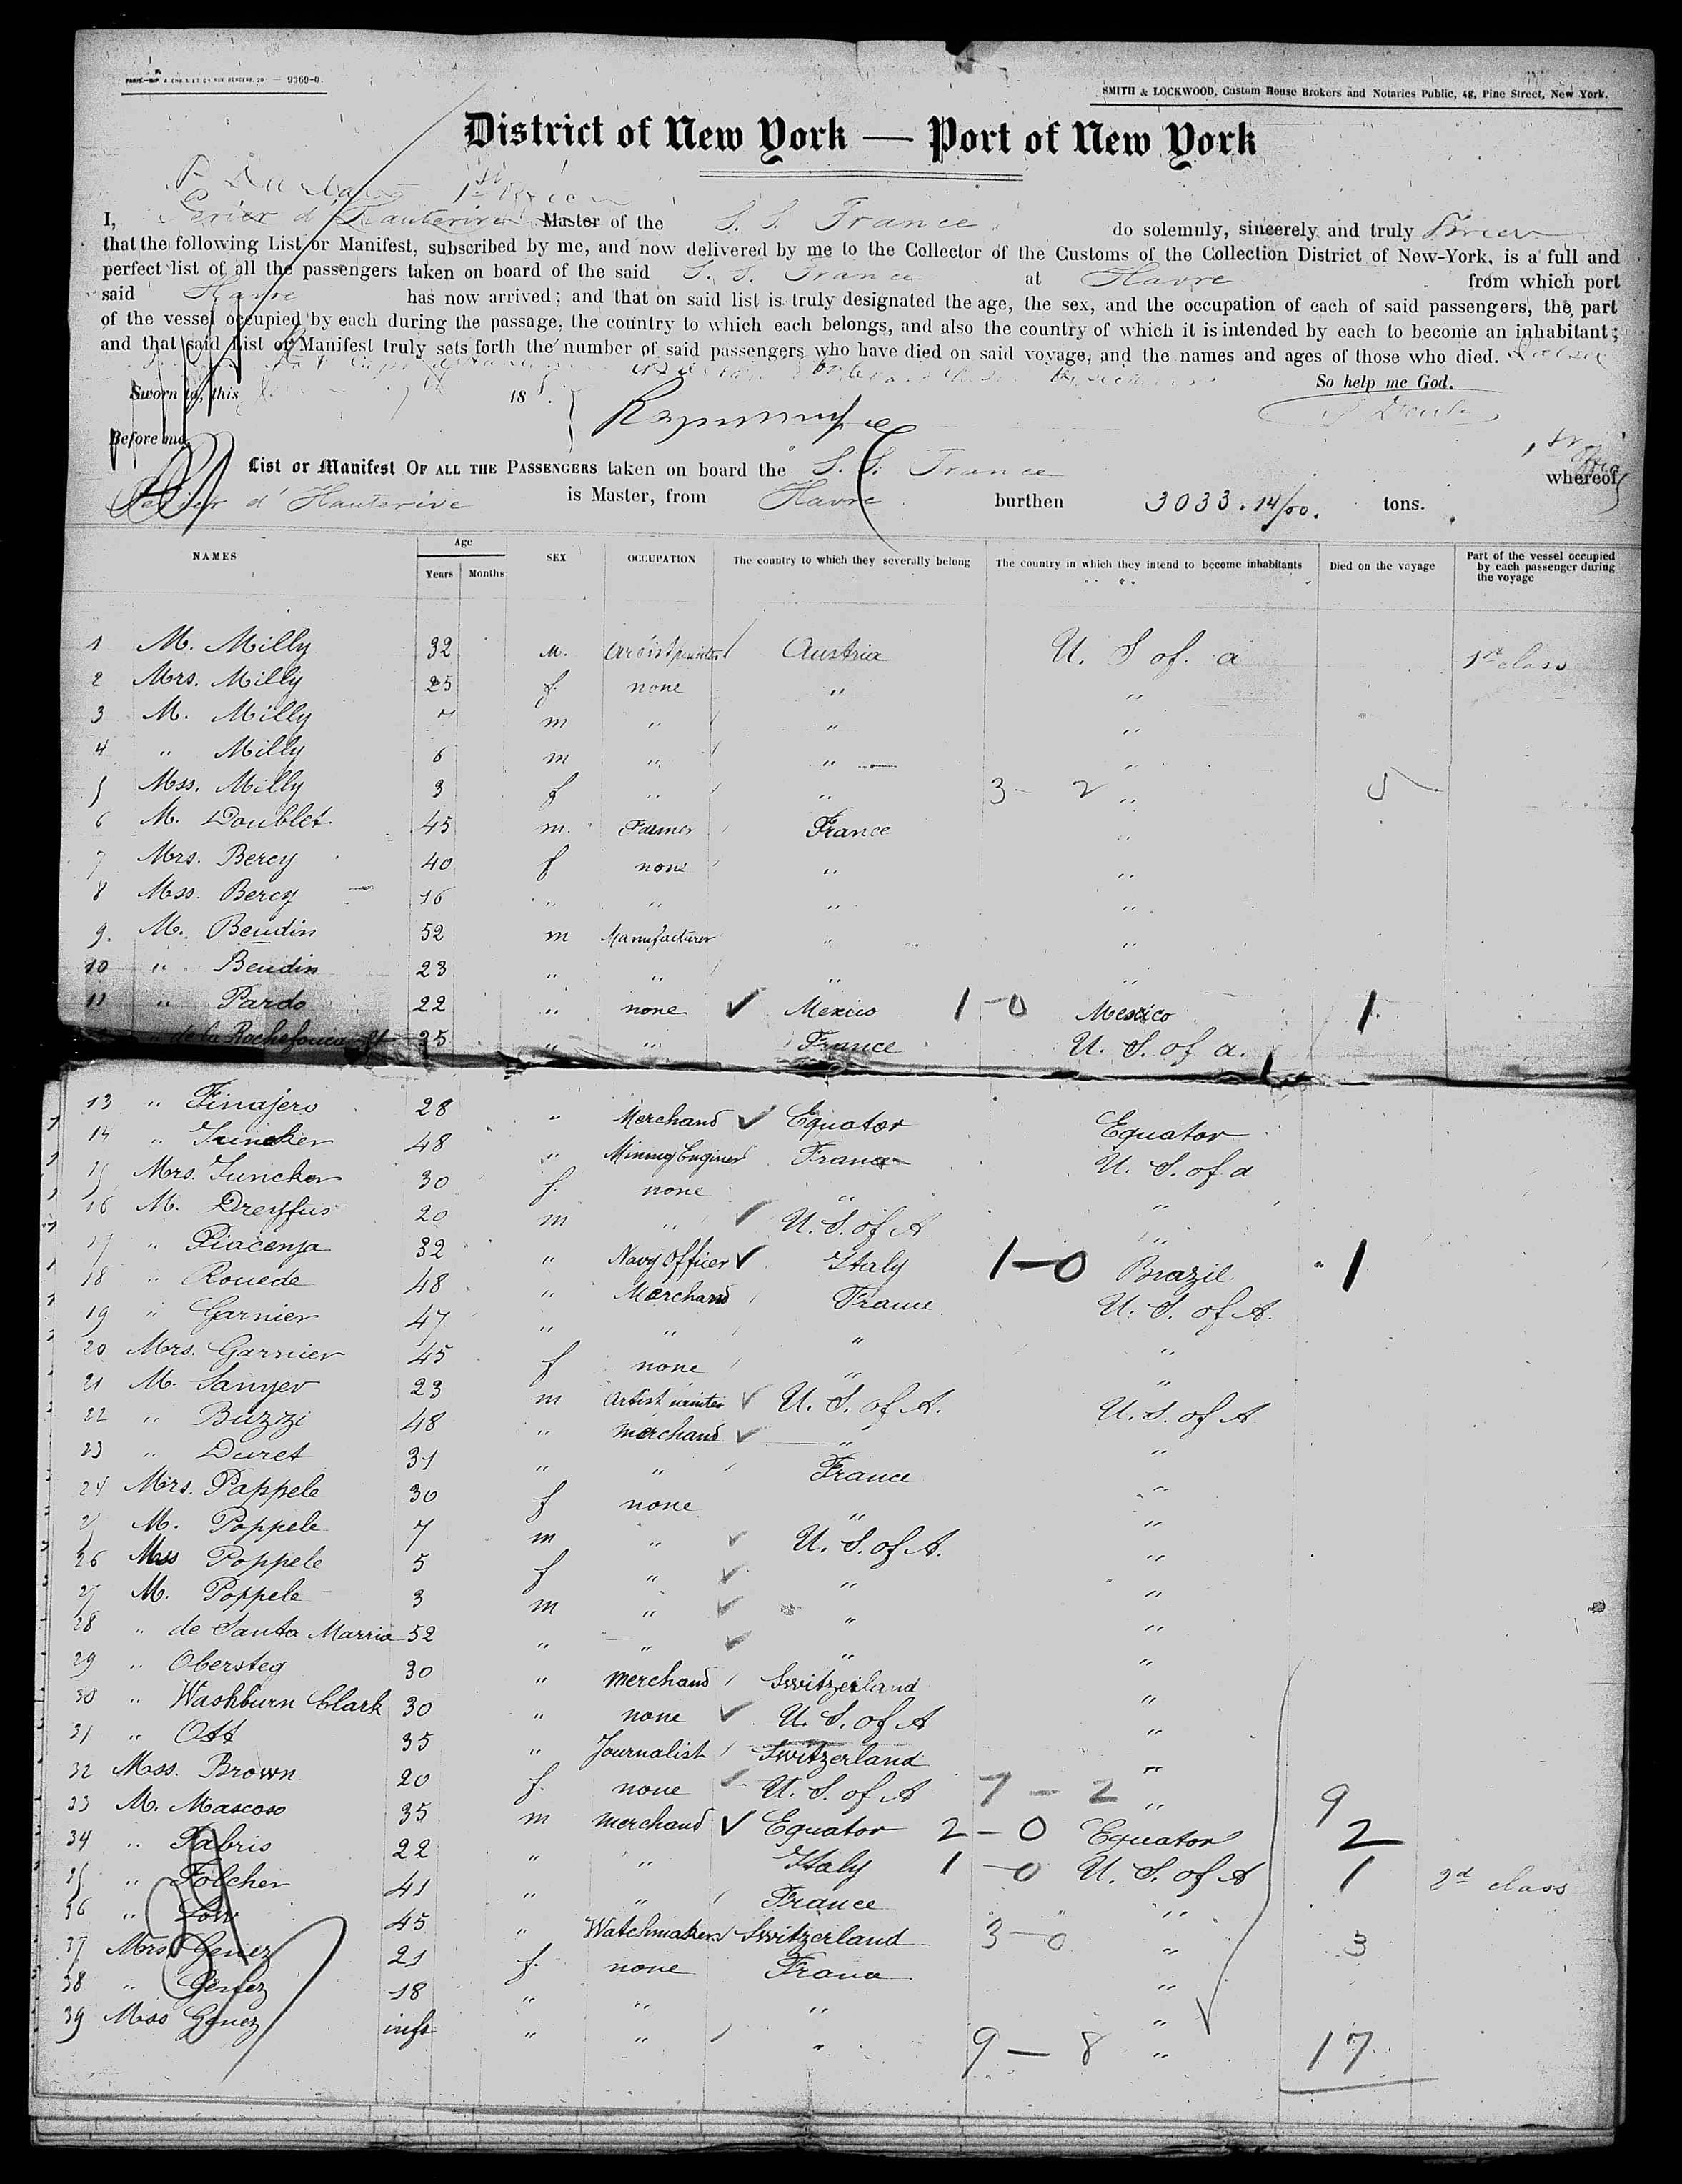 PARIS-IMP A. CHAIX ET Cie RUE BERGERE, 20 — 9369-0.
SMITH & LOCKWOOD, Custom House Brokers and Notaries Public, 48, Pine Street, New York.
District of New York — Port of New York
I, Perier d'Hauterive Master of the S. S. France do solemnly, sincerely and truly
that the following List or Manifest, subscribed by me, and now delivered by me to the Collector of the Customs of the Collection District of New-York, is a full and
perfect list of all the passengers taken on board of the said S. S. France at Havre from which port
said Havre has now arrived; and that on said list is truly designated the age, the sex, and the occupation of each of said passengers, the part
of the vessel occupied by each during the passage, the country to which each belongs, and also the country of which it is intended by each to become an inhabitant;
and that said List or Manifest truly sets forth the number of said passengers who have died on said voyage, and the names and ages of those who died.
So help me God.
Sworn to, this 18
Before me
List or Manifest OF ALL THE PASSENGERS taken on board the S. S. France whereof
Perier d'Hauterive is Master, from Havre burthen 3033.14/00. tons.
NAMES Age Years Months SEX OCCUPATION The country to which they severally belong The country in which they intend to become inhabitants Died on the voyage Part of the vessel occupied by each passenger during the voyage
1 M. Milly 32 M. Artist painter Austria U. S of. a 1st class
2 Mrs. Milly 25 f. none " "
3 M. Milly 7 m " " "
4 " Milly 6 m " " "
5 Mss. Milly 3 f " " 3 - 2 " 5
6 M. Doublet 45 m. Farmer France "
7 Mrs. Bercy 40 f none " "
8 Mss. Bercy 16 " " " "
9. M. Beudin 52 m Manufacturer " "
10 " Beudin 23 " " " "
11 " Pardo 22 " none ✓ Mexico 1-0 Mexico 1
" de la Rochefoucault 35 " " France U. S. of a. 1
13 " Finajero 28 " Merchand ✓ Equator Equator
14 " Juncker 48 " Mining Engineer France U. S. of a
15 Mrs. Juncker 30 f. none " "
16 M. Dreyfus 20 m " ✓ U. S. of A. "
17 " Piacenza 32 " Navy Officer ✓ Italy 1-0 Brazil 1
18 " Rouede 48 " Merchand France U. S. of A.
19 " Garnier 47 " " " "
20 Mrs. Garnier 45 f none " "
21 M. Sanyer 23 m Artist painter ✓ U. S. of A. U. S. of A
22 " Buzizi 48 " merchand ✓ " "
23 " Duret 31 " " France "
24 Mrs. Pappele 30 f none " "
25 M. Poppele 7 m " ✓ U. S. of A. "
26 Mss Poppele 5 f " ✓ " "
27 M. Poppele 3 m " ✓ " "
28 " de Santa Marria 52 " " ✓ " "
29 " Obersteg 30 " merchand Switzerland "
30 " Washburn Clark 30 " none ✓ U. S. of A "
31 " Ott 35 " Journalist Switzerland "
32 Mss. Brown 20 f. none ✓ U. S. of A 7 - 2 " 9
33 M. Mascoso 35 m merchand ✓ Equator 2 - 0 Equator 2
34 " Fabris 22 " " Italy 1 - 0 U. S. of A 1 2d class
35 " Folcher 41 " " France "
36 " Low 45 " Watchmaker Switzerland 3-0 " 3
37 Mrs. Genez 21 f. none France "
38 " Genez 18 " " " "
39 Miss Genez inft " " " 9 — 8 " 17